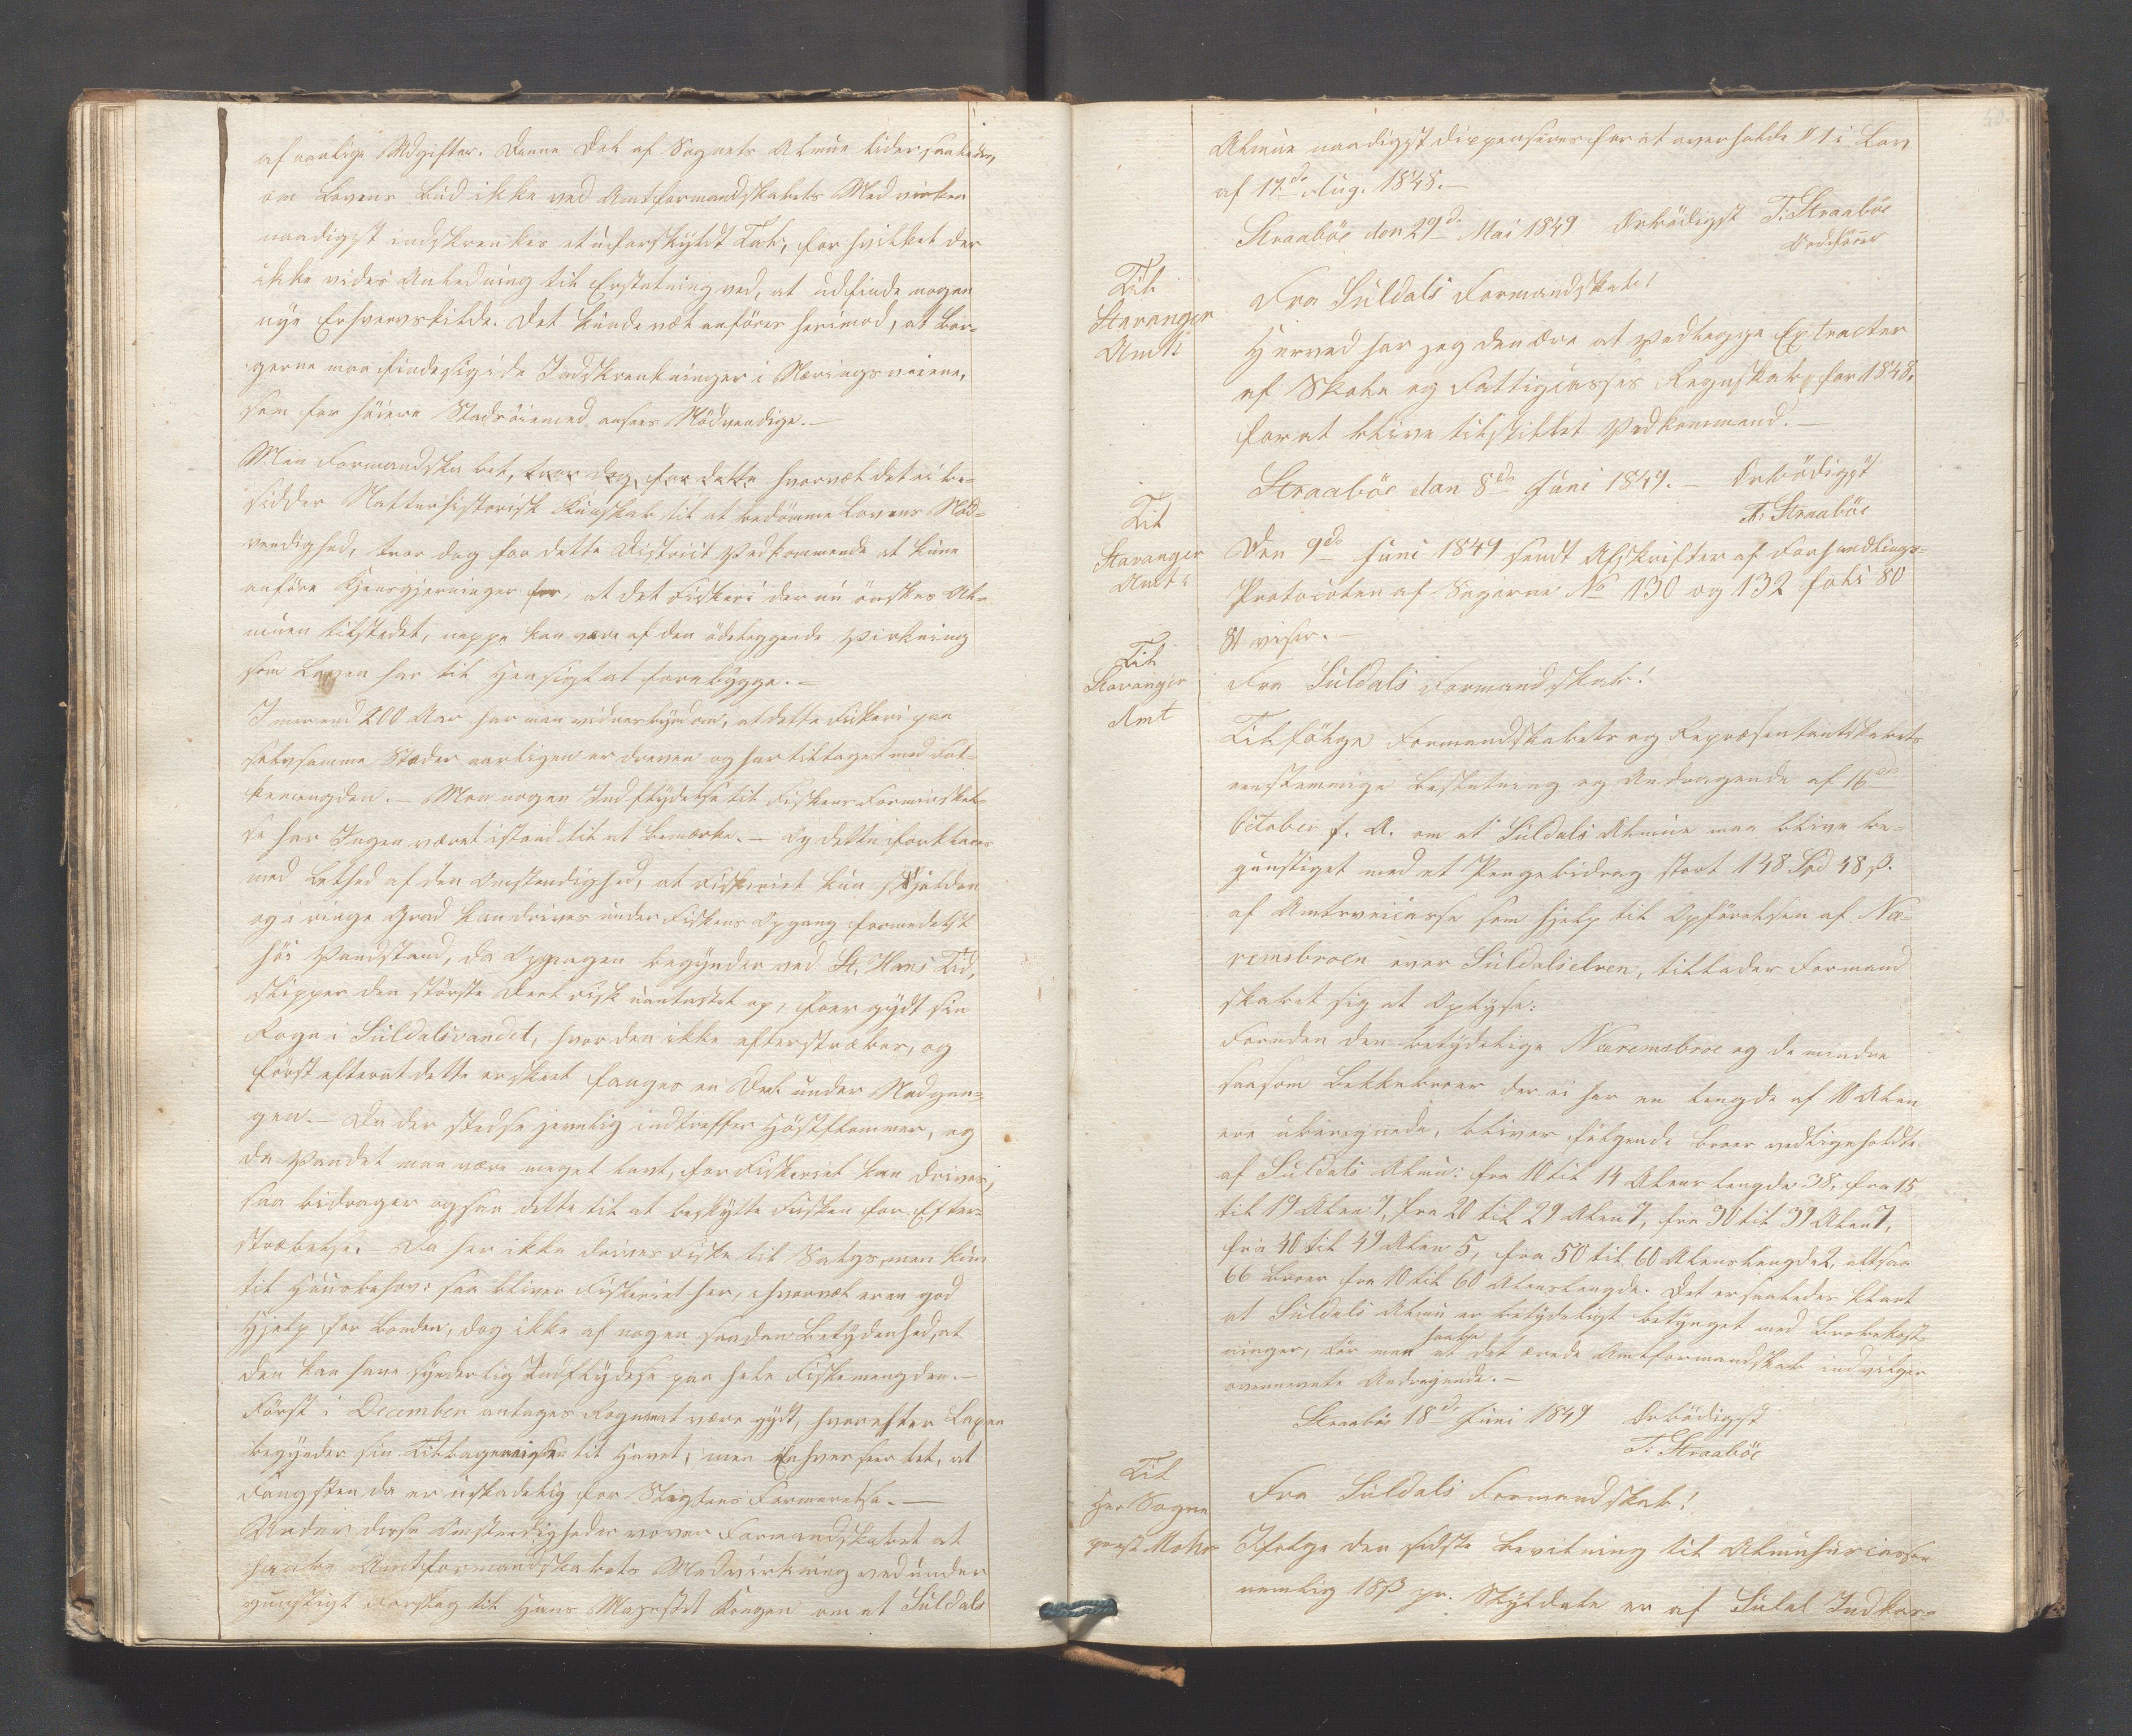 af vanlige Udgifter. Denne Del af Sognets Almue lider saaledes,
om Lovens Bud ikke ved Amtformandskabets Medvirken
naadigst indskrenkes et uforskyldt Tab, for hvilket der
ikke vides Anledning til Erstatning ved, at udfinde nogen
nye Erhvervskilde. Det kunde vel anføres herimod, at Bor-
gerne maa finde sig i de Indskrenkninger i Næringsveiene,
som for høiere Stadsøiemed ansees Nødvendige.—
Men Formandskabet, tror dog, for dette hvorvel det ei be-
sidder Natturhistorisk Kundskab til at bedømme Lovens Nød-
vendighed, tror dog for dette District Vedkommende at kune
anføre Kjensgjerninger for, at det Fiskeri der nu ønskes Al-
muen tilstedet, neppe kan være af den ødeleggende Virkning
som Loven har til Hensigt at forebygge.—
I mer end 200 Aar har man vidnesbyrd om, at dette Fiskeri paa
selvsamme Stæder aarligen er dreven og har tiltaget med Fol-
kemengden.— Men nogen Indflydelse til Fiskens Formindskel-
se har Ingen været istand til at bemærke.— Og dette forklares
med Lethed af den Omstendighed, at Fiskeriet kun skjelden
og i ringe Grad kan drives under Fiskens Opgang formedelst
høi Vandstand, da Opgangen begynder ved St. Hans Tid,
slipper den største Deel Fisk uantastet op, faar gydt sin
Rogn i Suldalsvandet, hvor den ikke efterstræbes, og
først efterat dette er skeet fanges en Deel under Nedgan-
gen.— Da der stedse jevnlig indtreffer Høstflommer, og
da Vandet maa være meget lavt, før Fiskeriet kan drives,
saa bidrager ogsaa dette til at beskytte Fisken for Efter-
stræbelse.— Da her ikke drives Fiske til Salgs, men kun
til Huusbehov: saa bliver Fiskeriet her, hvorvel er en god
Hjelp for Bonden, dog ikke af nogen saadan Betydenhed, at
den kan have synderlig Indflydelse paa hele Fiskemengden.—
Først i December antages Rognen at være gydt, hvorefter Laxen
begynder sin Tilbagereise til Havet, men Enhver seer let, at
Fangsten da er uskadelig for Slegtens Formerelse.—
Under disse Omstendigheder vover Formandskabet at
haabe Amtformandskabets Medvirkning ved under
gunstigt Forslag til Hans Majestet Kongen om at Suldals
Almue naadigst dispenseres for at overholde § 1 i Lov
af 17de Aug. 1848.—
Straabøe den 29de Mai 1849 Ærbødigst T: Straabøe
Ordfører
Til
Stavanger
Amt:
Fra Suldals Formandskab!
Herved har jeg den Ære at Vedlegge Extracter
af Skole og Fattigcasses Regnskab for 1848,
for at blive tilstillet Vedkommend.—
Straabøe den 8de Juni 1849.— Ærbødigst
T: Straabøe
Til
Stavanger
Amt:
Den 9de Juni 1849 sendt Afskrifter af Forhandlings-
Protocolen af Sagerne No 130 og 132 folio 80
81 viser.—
Til
Stavanger
Amt
Fra Suldals Formandskab!
Tilfølge Formandskabets og Repræsentantskabets
eenstemmige Beslutning og Andragende af 16de
October f. A. om at Suldals Almue maa blive be-
gunstiget med et Pengebidrag stort 148 Spd 48 ß.
af Amtsveicasse som hjelp til Opførelsen af Næ-
remsbroen over Suldalselven, tillader Formand
skabet sig at Oplyse:
Foruden den betydelige Næremsbroe og de mindre
saasom Bekkebroer der ei har en Lengde af 10 Alen
ere uberegnede, bliver følgende Broer vedligeholdte
af Suldals Almu: fra 10 til 14 Alens Lengde 38, fra 15
til 19 Alen 7, fra 20 til 29 Alen 7, fra 30 til 39 Alen 7,
fra 40 til 49 Alen 5, fra 50 til 60 Alens Lengde 2, altsaa
66 Broer fra 10 til 60 Alens Lengde. Det er saaledes klart
at Suldals Almu er betydeligt betynget med Brobekost-
haabe
ninger, tør man at det ærede Amtformandskab indvilger
ovennevnte Andragende.—
Straabøe 18de Juni 1849 Ærbødigst
T: Straabøe
Til
Herr Sogne
prest Mohr
Fra Suldals Formandskab!
Ifølge den sidste Bevilning til Almuskolecassen
nemlig 18ß pr. Skyldale er af Suldal Indkas-